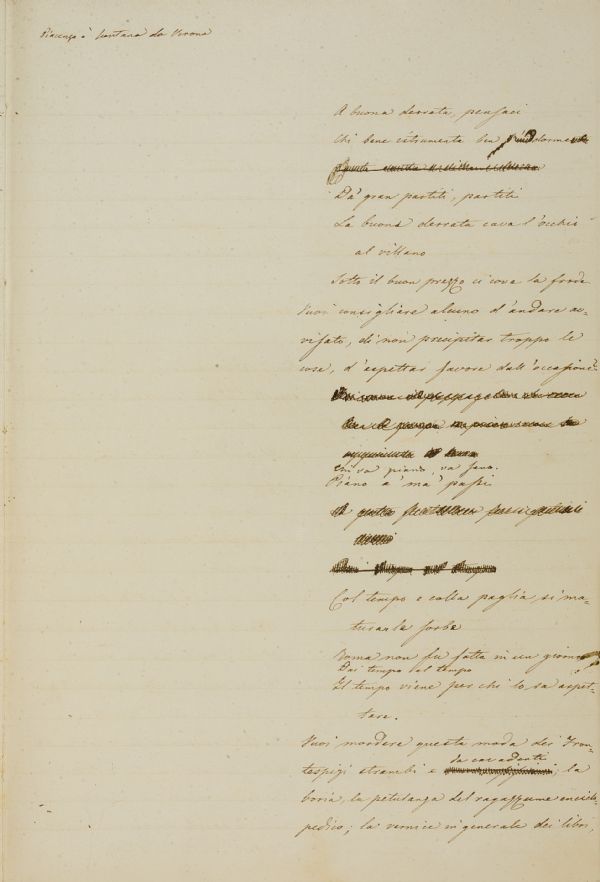 Piacenza è lontana da Verona
A buona derrata, pensaci
Chi bene istrumenta ben
Da' gran partiti, partiti
La buona derrata cava l'occhio
al villano
Sotto il buon prezzo ci cova la frode
Vuoi consigliare alcuno d'andare av-
visato, di non precipitar troppo le
cose, d'aspettar favore dall'occasione?
Chi va piano, va sano.
Piano a' ma' passi
Col tempo e colla paglia, si ma-
turan le sorbe
Roma non fu fatta in un giorno
Dai tempo al tempo
Il tempo viene per chi lo sa aspet-
tare.
Vuoi mordere questa moda dei Fron-
da cavadenti
tespizi strambi e ; la
boria, la petulanza del ragazzume encicl-
pedico; la vernice in generale dei libri,